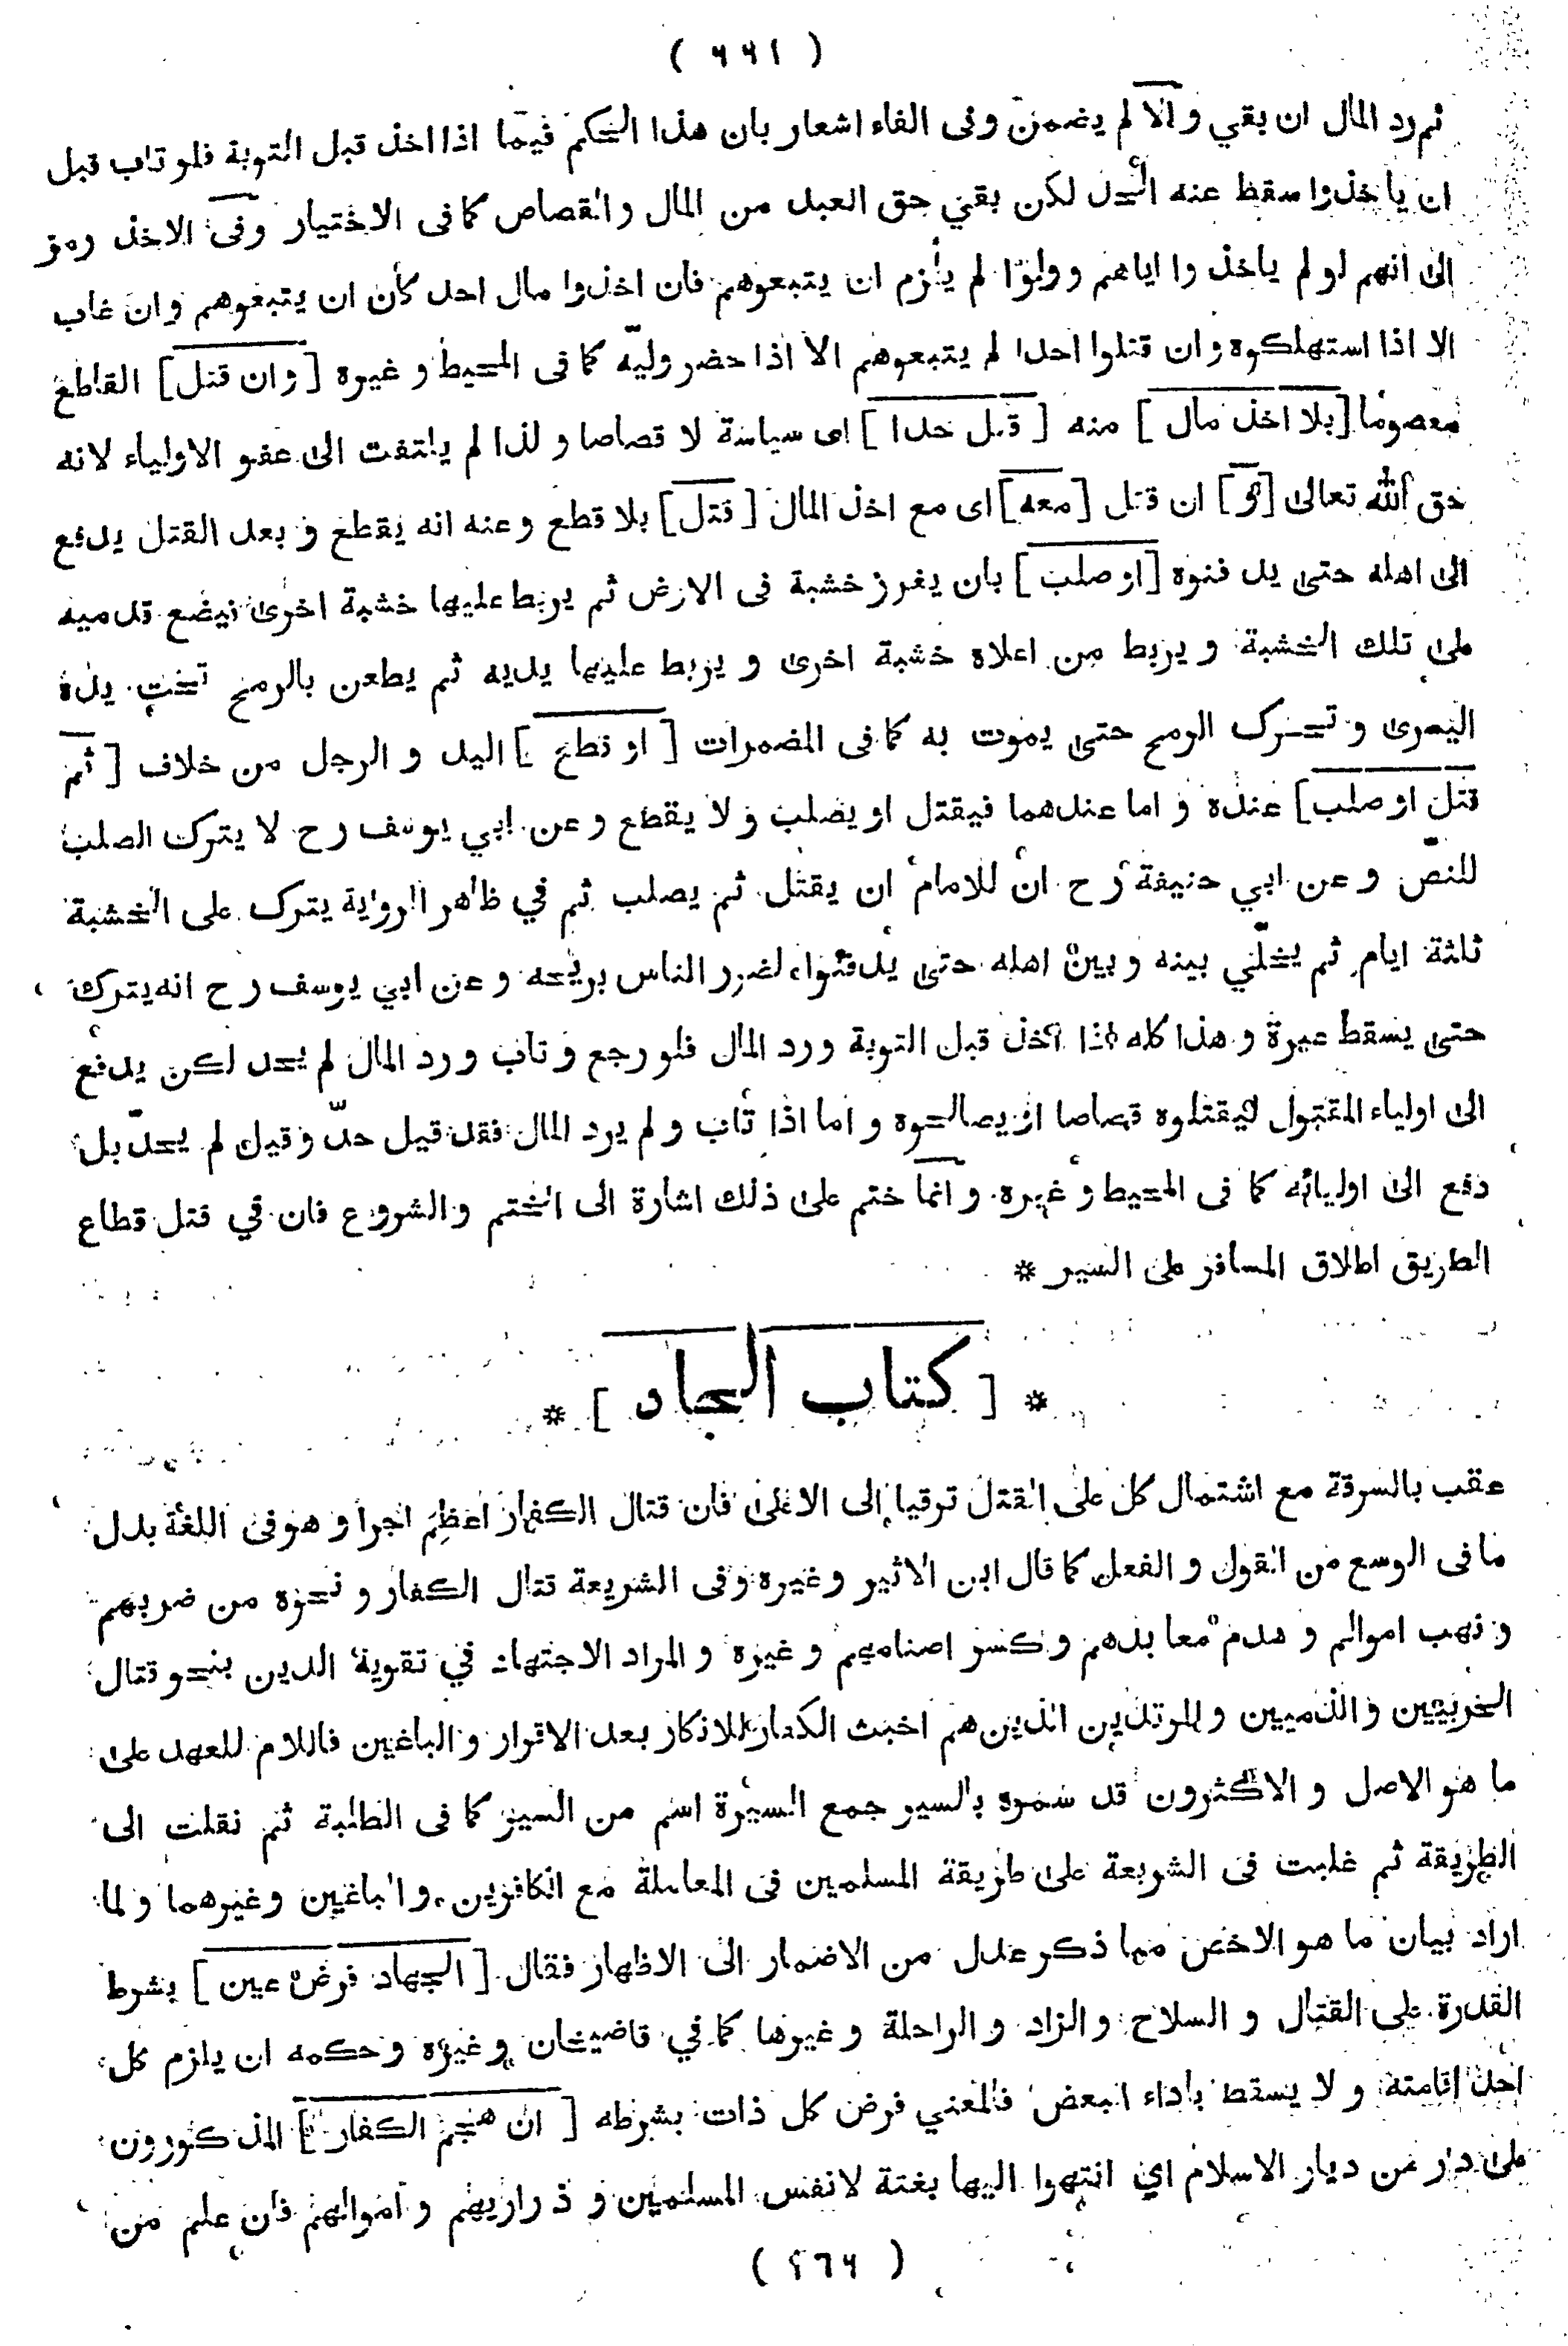 ( ٦٦١ )
ثم رد المال ان بقي و الا لم يضمن وفى الفاء اشعار بان هذا الحكم فيما اذا اخذ قبل التوبة فلو تاب قبل
ان ياخذوا سقط عنه الحد لكن بقى حق العبد من المال والقصاص كما فى الاختيار وفى الاخذ رمز
الى انهم لو لم ياخذوا اياهم وولوا لم يلزم ان يتبعوهم فان اخذوا مال احد كان ان يتبعوهم وان غاب
الا اذا استهلكوه وان قتلوا احدا لم يتبعوهم الا اذا حضر وليّه كما فى المحيط و غيره [ وان قتل ] القاطع
معصوما [ بلا اخذ مال ] منه [ قتل حدا ] اى سياسة لا قصاصا و لذا لم يلتفت الى عفو الاولياء لانه
حق الله تعالى [ و ] ان قتل [ معه ] اى مع اخذ المال [ قتل ] بلا قطع وعنه انه يقطع و بعد القتل يدفع
الى اهله حتى يدفنوه [ او صلب ] بان يغرز خشبة فى الارض ثم يربط عليها خشبة اخرى فيضع قدميه
على تلك الخشبة و يربط من اعلاه خشبة اخرى و يربط عليها يديه ثم يطعن بالرمح تحت يده
اليسرى و تحرك الرمح حتى يموت به كما فى المضمرات [ او قطع ] اليد و الرجل من خلاف [ ثم
قتل او صلب ] عنده و اما عندهما فيقتل او يصلب و لا يقطع و عن ابي يوسف رح لا يترك الصلب
للنصّ و عن ابي حنيفة رح ان للامام ان يقتل ثم يصلب ثم في ظاهر الرواية يترك على الخشبة
ثلثة ايام ثم يخلّي بينه وبين اهله حتى يدفنوا لضرر الناس بريحه و عن ابي يوسف رح انه يترك
حتى يسقط عبرة و هذا كله اذا اخذ قبل التوبة ورد المال فلو رجع و تاب و رد المال لم يحد لكن يدفع
الى اولياء المقتول ليقتلوه قصاصا او يصالحوه و اما اذا تاب و لم يرد المال فقد قيل حدّ وقيل لم يحدّ بل
دفع الى اوليائه كما فى المحيط و غيره و انما ختم على ذلك اشارة الى الختم والشروع فان في قتل قطاع
الطريق اطلاق المسافر على السير *
* [ كتاب الجهاد ] *
عقب بالسرقة مع اشتمال كل على القتل ترقيا الى الاعلى فان قتال الكفار اعظم اجرا و هو فى اللغة بذل
ما فى الوسع من القول و الفعل كما قال ابن الاثير وغيره وفى الشريعة قتال الكفار و نحوه من ضربهم
و نهب اموالهم و هدم معابدهم وكسر اصنامهم و غيره و المراد الاجتهاد في تقوية الدين بنحو قتال
الحربيين والذميين و المرتدين الذين هم اخبث الكفار للانكار بعد الاقرار و الباغين فاللام للعهد على
ما هو الاصل و الاكثرون قد سموه بالسير جمع السيرة اسم من السير كما فى الطلبة ثم نقلت الى
الطريقة ثم غلبت فى الشريعة على طريقة المسلمين فى المعاملة مع الكافرين والباغين وغيرهما و لما
اراد بيان ما هو الاخص مما ذكر عدل من الاضمار الى الاظهار فقال [ الجهاد فرض عين ] بشرط
القدرة على القتال و السلاح و الزاد و الراحلة و غيرها كما في قاضيخان وغيره وحكمه ان يلزم كل
احد اقامته و لا يسقط باداء البعض فالمعني فرض كل ذات بشرطه [ ان هجم الكفار ] المذكورون
على دار من ديار الاسلام اي انتهوا اليها بغتة لانفس المسلمين و ذراريهم و اموالهم فان علم من